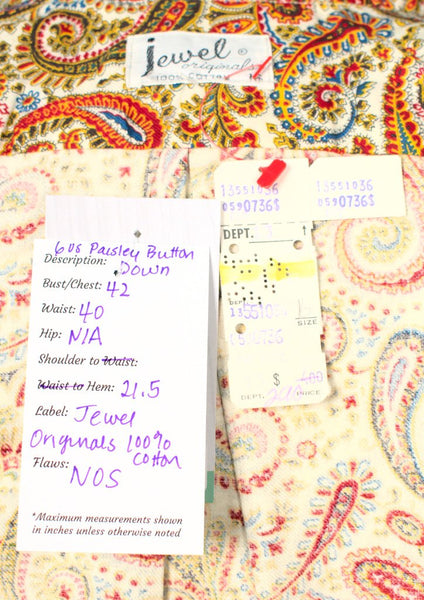 Jewel ®
originals
100% COTTON
13551036
0590736$
13551036
0590736$
DEPT.
SIZE
$ 400
DEPT.
PRICE
60s Paisley Button
Description: Down
Bust/Chest: 42
Waist: 40
Hip: N/A
Shoulder to Waist:
Waist to Hem: 21.5
Label: Jewel
Originals 100%
cotton
Flaws:
NOS
*Maximum measurements shown
in inches unless otherwise noted